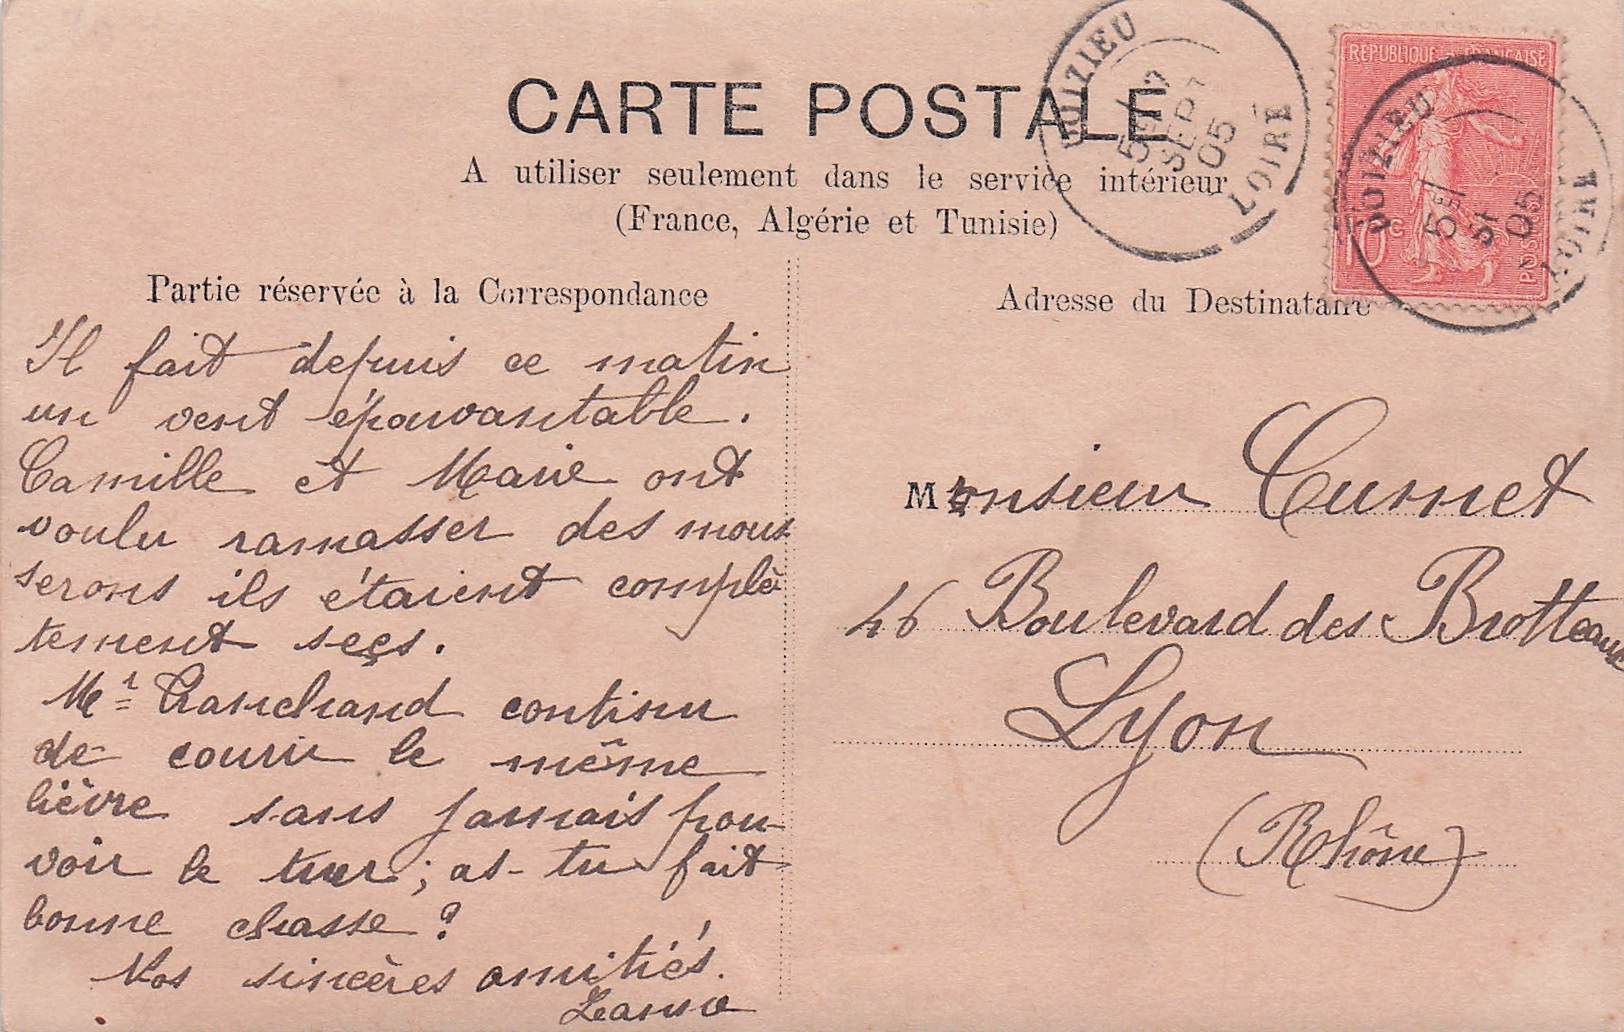 CARTE POSTALE
A utiliser seulement dans le service intérieur
(France, Algérie et Tunisie)
Partie réservée à la Correspondance
Il fait depuis ce matin
un vent épouvantable.
Camille et Marie ont
voulu ramasser des mous
serons ils étaient complè
tement secs.
Mr Tranchand continu
de courir le même
lièvre sans jamais pou-
voir le tuer ; as-tu fait
bonne chasse ?
Nos sincères amitiés.
Jeanne
Adresse du Destinataire
Monsieur Cumet
46 Boulevard des Brotteaux
Lyon
(Rhône)
REPUBLIQUE FRANÇAISE
10 c
POSTES
DOIZIEU
5E
SEPT
05
LOIRE
DOIZIEU
5E
31
05
LOIRE